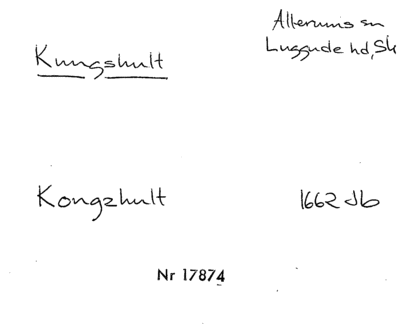 Allerums sn
Kungshult
Luggude hd, Sk
Kongzhult
1662 Jb
Nr 17874